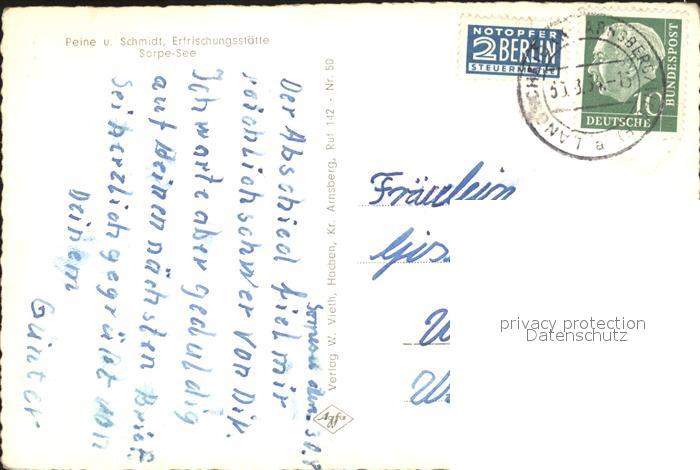 Peine u. Schmidt, Erfrischungsstätte
Sorpe-See
Sorpesee den 30.8
Der Abschied fiel mir
reichlich schwer von Dir.
Ich warte aber geduldig
auf Deinen nächsten Brief.
Sei herzlich gegrüßt von
Deinem
Günter
Verlag W. Vieth, Hachen, Kr. Arnsberg, Ruf 142 - Nr. 50
Agfa
NOTOPFER
2 BERLIN
STEUERMARKE
ARNSBERG
10
DEUTSCHE
BUNDESPOST
Fräulein
Gis
W
W
privacy protection
Datenschutz